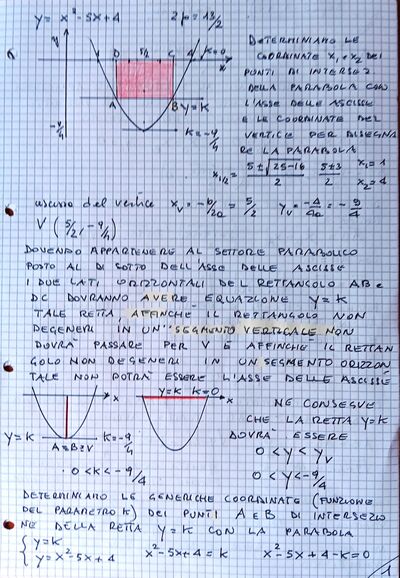 y = x² - 5x + 4 2p = 13/2
y D 5/2 C 4 k=0
x
A B y=k
-9/4 k=-9/4
DETERMINIAMO LE
COORDINATE x₁ e x₂ DEI
PUNTI DI INTERSEZ
DELLA PARABOLA CON
L'ASSE DELLE ASCISSE
E LE COORDINATE DEL
VERTICE PER DISEGNA
RE LA PARABOLA
x₁/₂ = 5±√25-16/2 5±3/2 x₁=1
x₂=4
ascissa del vertice x_V = -b/2a = 5/2 y_V = -Δ/4a = -9/4
V (5/2, -9/4)
DOVENDO APPARTENERE AL SETTORE PARABOLICO
POSTO AL DI SOTTO DELL'ASSE DELLE ASCISSE
I DUE LATI ORIZZONTALI DEL RETTANGOLO AB e
DC DOVRANNO AVERE EQUAZIONE y=k
TALE RETTA AFFINCHE IL RETTANGOLO NON
DEGENERI IN UN SEGMENTO VERTICALE NON
DOVRA' PASSARE PER V E AFFINCHE IL RETTAN
GOLO NON DEGENERI IN UN SEGMENTO ORIZZON
TALE NON POTRA' ESSERE L'ASSE DELLE ASCISSE
x y=k k=0 x
y=k A≡B≡V k=-9/4
0<k<-9/4
NE CONSEGUE
CHE LA RETTA y=k
DOVRA' ESSERE
0<y<y_V
0<y<-9/4
DETERMINIAMO LE GENERICHE COORDINATE (FUNZIONE
DEL PARAMETRO k) DEI PUNTI A E B DI INTERSEZIO
NE DELLA RETTA y=k CON LA PARABOLA
{ y=k
y=x²-5x+4 x²-5x+4=k x²-5x+4-k=0
1